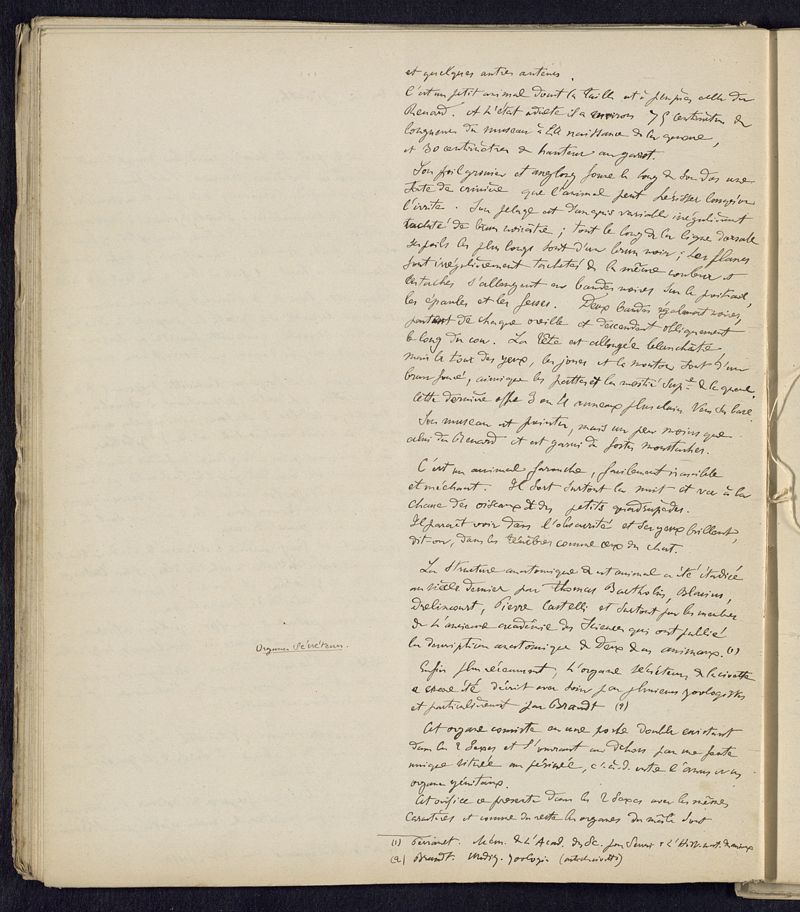 et quelques autres auteurs.
C'est un petit animal dont la taille est à peu près celle du
Renard. A l'état adulte il a environ 75 centimètres de
longueur du museau à la naissance de la queue,
et 30 centimètres de hauteur au garrot.
Son poil grossier et assez long forme le long de son dos une
sorte de crinière que l'animal peut hérisser lorsqu'on
l'irrite. Son pelage est d'un gris variable irrégulièrement
tacheté de brun noirâtre ; tout le long de la ligne dorsale
ses poils les plus longs sont d'un brun noir ; Les flancs
sont irrégulièrement tachetés de la même couleur et
ces taches s'allongent en bandes noires sur le poitrail,
les épaules et les fesses. Deux bandes également noires,
partent de chaque oreille et descendent obliquement
le long du cou. La tête est allongée blanchâtre
mais le tour des yeux, les joues et le menton sont d'un
brun foncé, ainsi que les pattes et la moitié Supre de la queue.
Cette dernière offre 3 ou 4 anneaux plus clairs vers la base.
Son museau est pointu, mais un peu moins que
celui du Renard et est garni de fortes moustaches.
C'est un animal farouche, facilement irascible
et méchant. Il sort surtout la nuit et va à la
chasse des oiseaux & des petits quadrupèdes.
Il paraît voir dans l'obscurité et ses yeux brillent,
dit-on, dans les ténèbres comme ceux du chat.
La structure anatomique de cet animal a été étudiée
au siècle dernier par Thomas Bartholin, Blasius,
Drelincourt, Pierre Castelli et surtout par les membres
de l'ancienne académie des Sciences qui ont publié
la description anatomique de deux de ces animaux. (1)
Organes Sécréteurs.
Enfin plus récemment, l'organe sécréteur de la civette
a encore été décrit avec soin par plusieurs zoologistes
et particulièrement par Brandt (2)
Cet organe consiste en une poche double existant
dans les 2 Sexes et s'ouvrant au dehors par une fente
unique située au périnée, c.à.d. entre l'anus et les
organes génitaux.
Cet orifice se présente dans les 2 Sexes avec les mêmes
caractères et comme du reste les organes du mâle sont
(1) Mém. de l'Acad. des Sc. pour servir à l'Hist. nat. des animaux
(2) Brandt. Mediz. zoologie